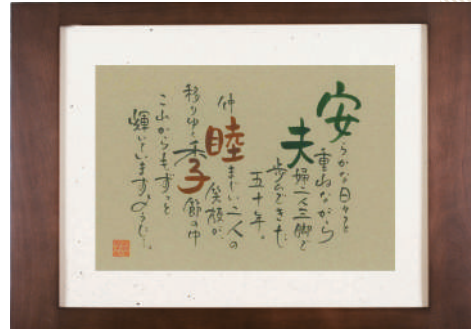 安らかな日々を
重ねながら
夫婦二人三脚で
歩んできた
五十年。
仲睦まじい二人の
笑顔が
移りゆく季節の中
これからもずっと
輝いていますように…。